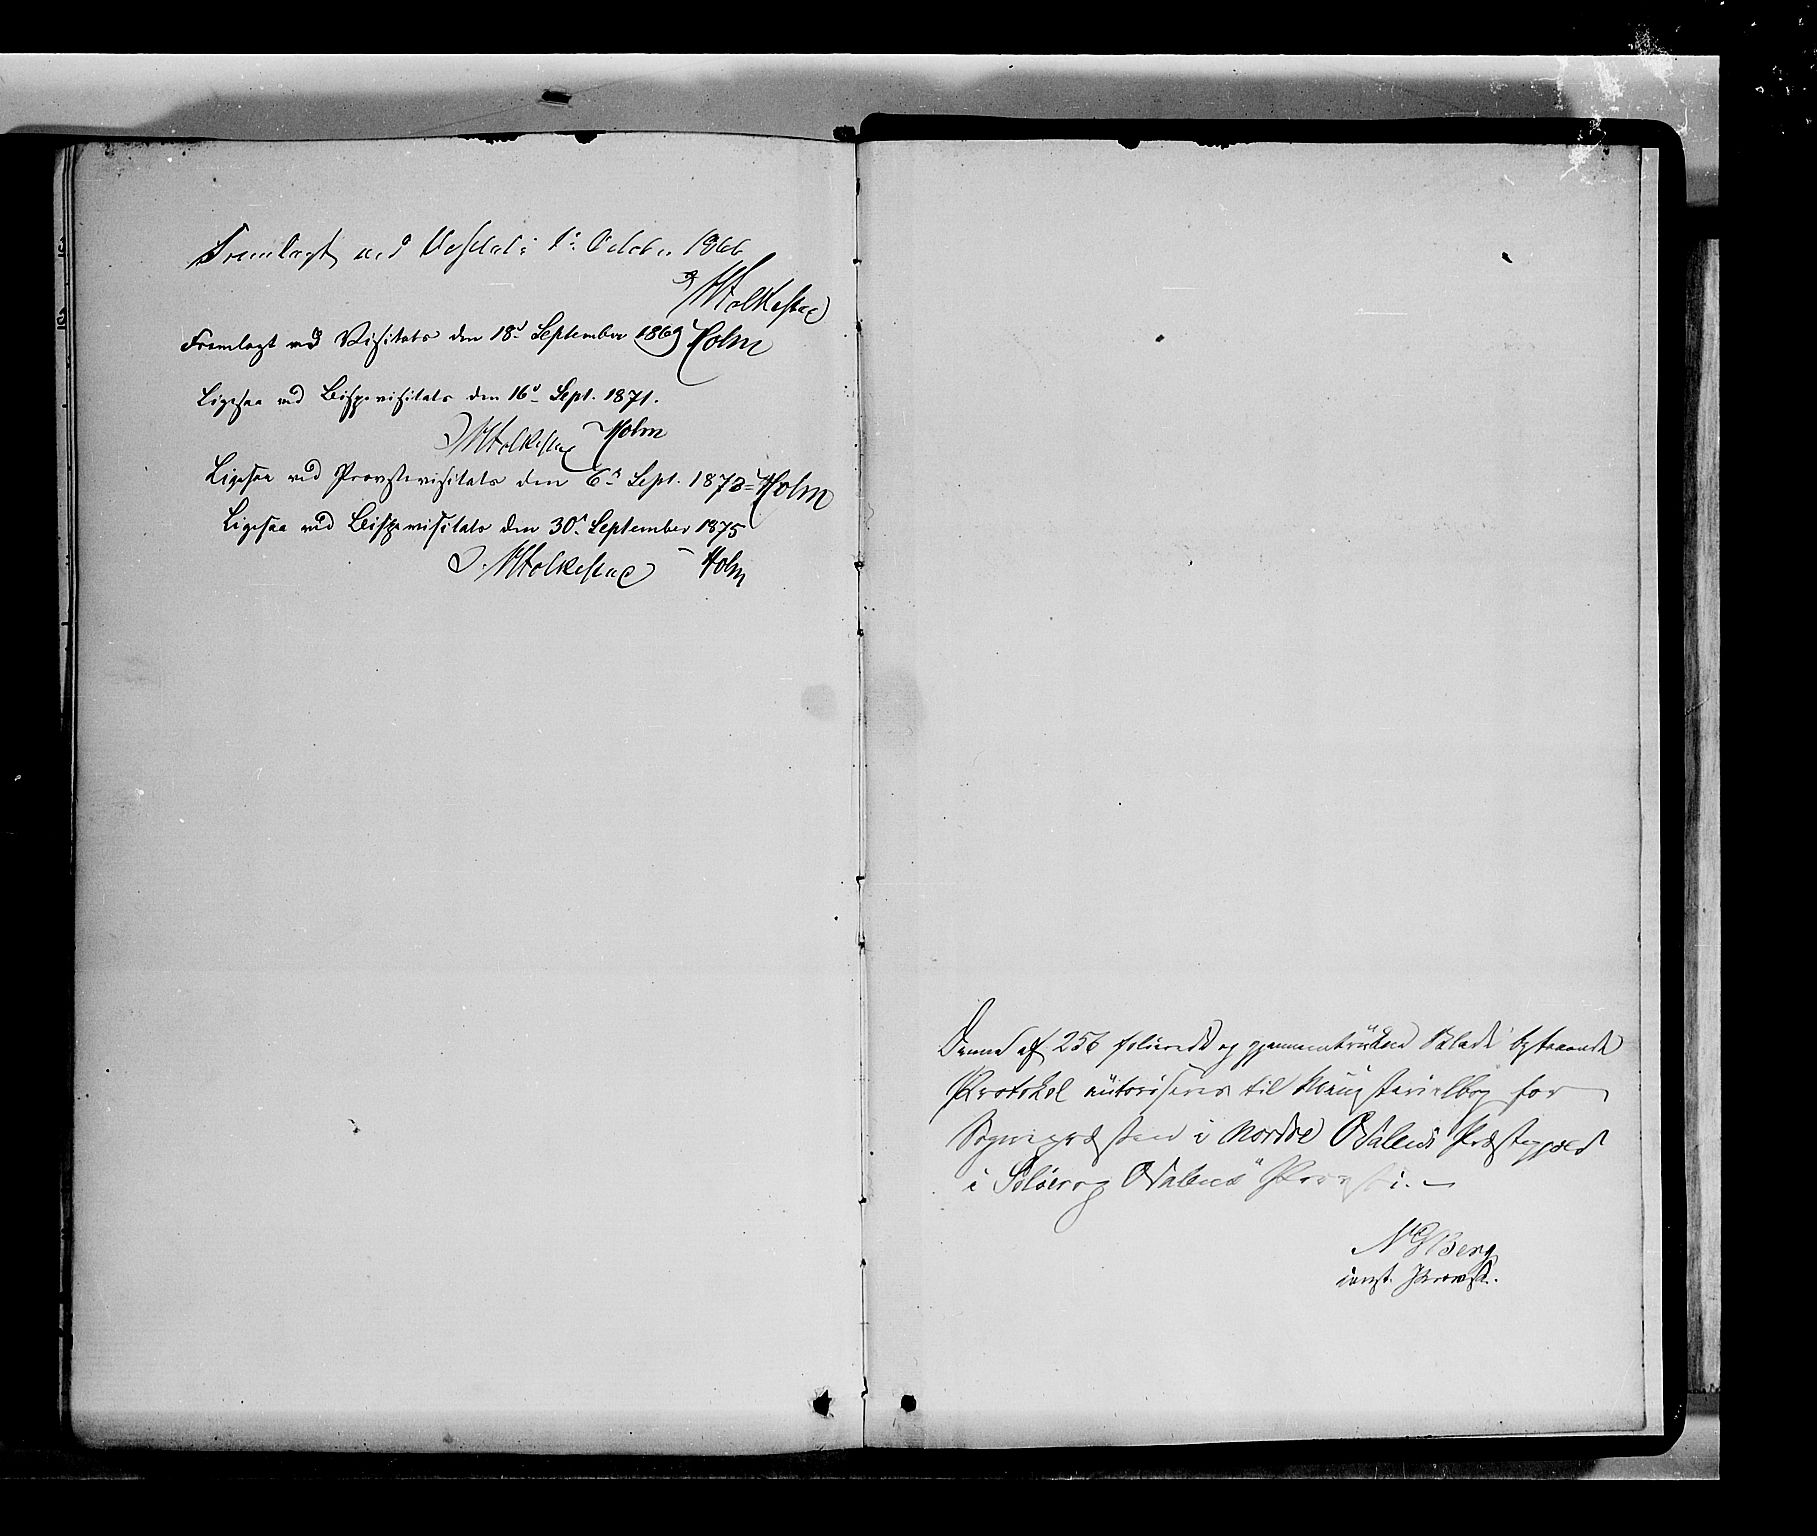 Fremlagt ved Visitats 1ste October 1866
H Halkestad
Fremlagt ved Visitats den 18d September 1869 Holm
Ligesaa ved Bispevisitats den 16d Sept. 1871.
Holm
Ligesaa ved Provstevisitats den 6d Sept. 1873 = Holm
Ligesaa ved Bispevisitats den 30d September 1875
Holm
Denne af 256 folierede og gjennemtrukne Blade bestaaende
Protokol autoriseres til Ministerialbog for
Sognepræsten i Nordre Odalens Præstegjæld
i Solør og Odalens Provsti. —
N G Berg
const. Provst.